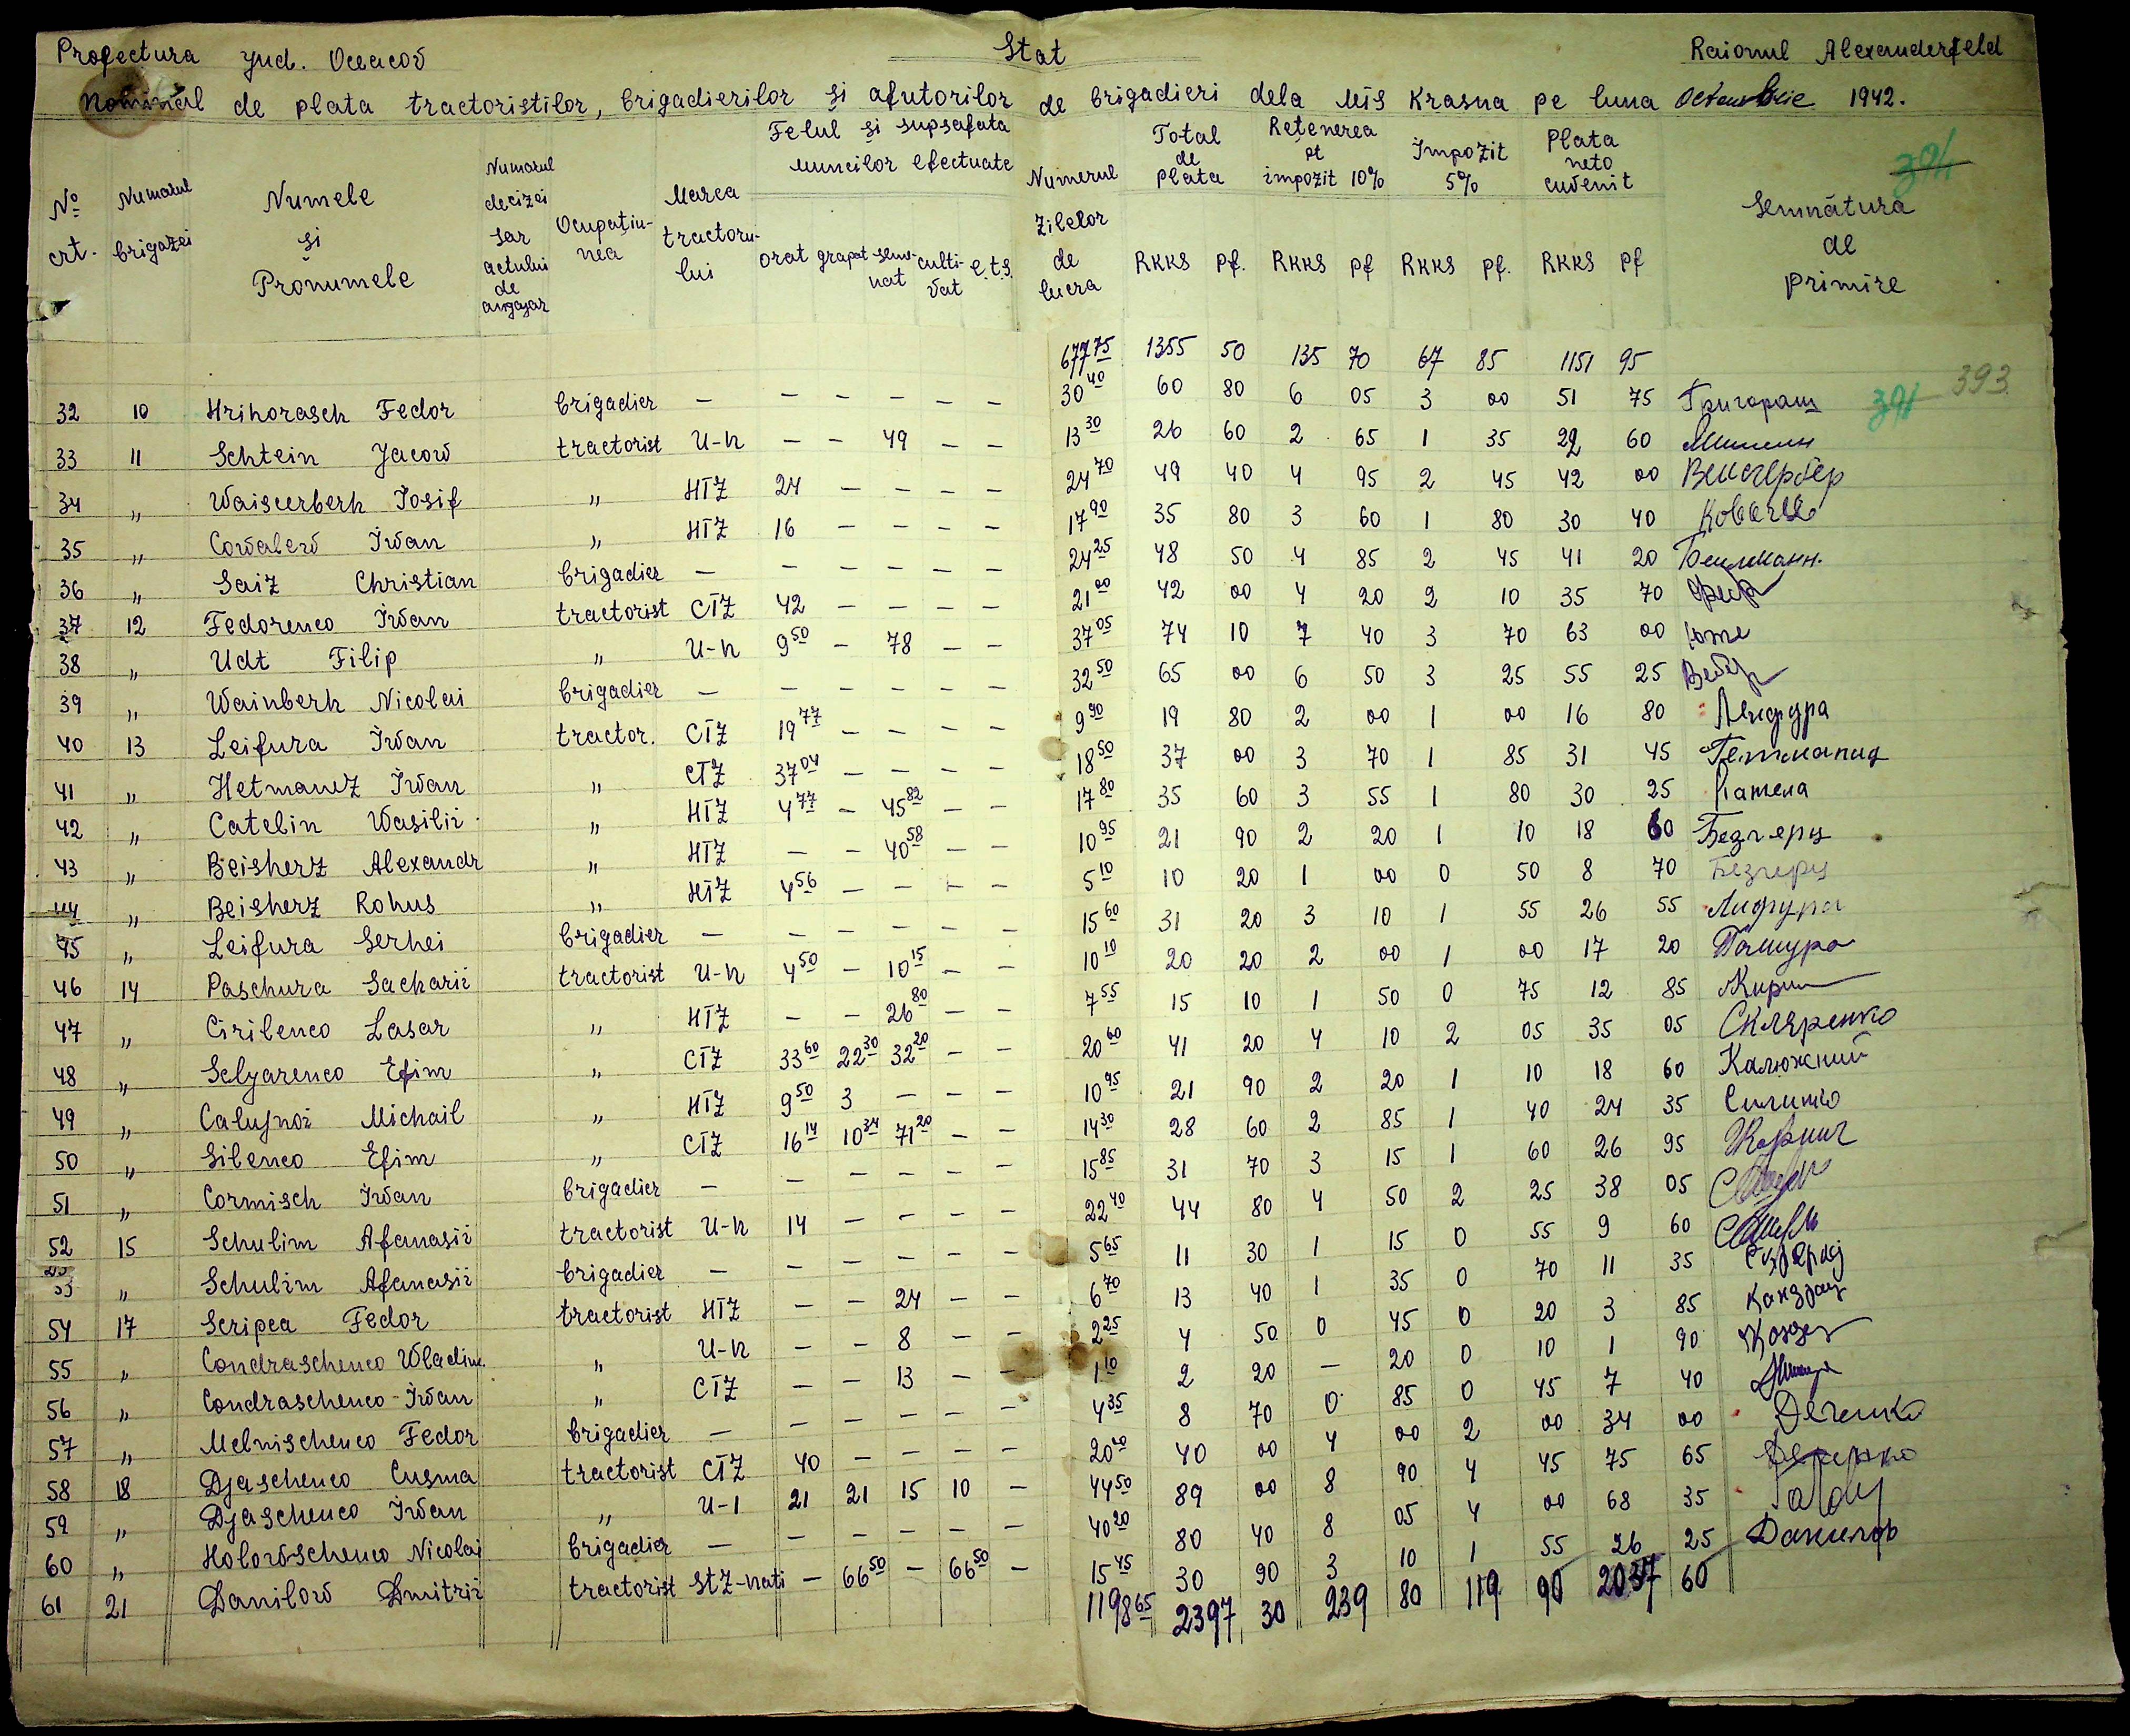 Profectura jud. Oceacov Stat Raionul Alexanderfeld
Nominal de plata tractoristilor, brigadierilor și ajutorilor de brigadieri dela MTS Krasna pe luna Octombrie 1942.
No crt. Numarul brigazei Numele și Pronumele Numarul decizei sar actului de angajar Ocupațiunea Marca tractorului Felul și supsafata muncilor efectuate orat grapat semnat cultivat e.t.s. Numerul zilelor de lucra Total de plata RKKS Pf. Reținerea pt impozit 10% RKKS Pf Impozit 5% RKKS Pf. Plata neto cuvenit RKKS Pf Semnătura de primire
391
677 75 1355 50 135 70 67 85 1151 95
393
391
32 10 Hrihorasch Fedor brigadier — — — — — — 30 40 60 80 6 05 3 00 51 75 Григораш
33 11 Schtein Jacow tractorist U-k — — 49 — — 13 30 26 60 2 65 1 35 22 60
34 " Waiscerberh Iosif " HTZ 24 — — — — 24 70 49 40 4 95 2 45 42 00
35 " Cowalew Iwan " HTZ 16 — — — — 17 90 35 80 3 60 1 80 30 40
36 " Saiz Christian brigadier — — — — — — 24 25 48 50 4 85 2 45 41 20
37 12 Fedorenco Iwan tractorist CTZ 42 — — — — 21 00 42 00 4 20 2 10 35 70
38 " Udt Filip " U-k 9 50 — 78 — — 37 05 74 10 7 40 3 70 63 00
39 " Wainberh Nicolai brigadier — — — — — — 32 50 65 00 6 50 3 25 55 25
40 13 Leifura Iwan tractor. CTZ 19 77 — — — — 9 90 19 80 2 00 1 00 16 80 Лейфура
41 " Hetmanez Iwan " CTZ 37 04 — — — — 18 50 37 00 3 70 1 85 31 45
42 " Catelin Wasilii " HTZ 4 77 — 45 82 — — 17 80 35 60 3 55 1 80 30 25
43 " Beisherz Alexandr " HTZ — — 40 58 — — 10 95 21 90 2 20 1 10 18 60 Безгерц
44 " Beisherz Rohus " HTZ 4 56 — — — — 5 10 10 20 1 00 0 50 8 70 Безгерц
45 " Leifura Serhei brigadier — — — — — — 15 60 31 20 3 10 1 55 26 55 Лифура
46 14 Paschura Sacharii tractorist U-k 4 50 — 10 15 — — 10 10 20 20 2 00 1 00 17 20 Пашура
47 " Cirilenco Lasar " HTZ — — 26 80 — — 7 55 15 10 1 50 0 75 12 85
48 " Sclyarenco Efim " CTZ 33 60 22 30 32 20 — — 20 60 41 20 4 10 2 05 35 05 Скляренко
49 " Calujnoi Michail " HTZ 9 50 3 — — — 10 95 21 90 2 20 1 10 18 60 Калюжний
50 " Silenco Efim " CTZ 16 14 10 34 71 20 — — 14 30 28 60 2 85 1 40 24 35
51 " Cormisch Iwan brigadier — — — — — — 15 85 31 70 3 15 1 60 26 95
52 15 Schulim Afanasii tractorist U-k 14 — — — — 22 40 44 80 4 50 2 25 38 05
53 " Schulim Afanasii brigadier — — — — — — 5 65 11 30 1 15 0 55 9 60
54 17 Scripca Fedor tractorist HTZ — — 24 — — 6 70 13 40 1 35 0 70 11 35
55 " Condraschenco Wladim. " U-k — — 8 — — 2 25 4 50 0 45 0 20 3 85
56 " Condraschenco - Iwan " CTZ — — 13 — — 1 10 2 20 — 20 0 10 1 90
57 " Melnischenco Fedor brigadier — — — — — — 4 35 8 70 0 85 0 45 7 40
58 18 Djaschenco Cusma tractorist CTZ 40 — — — — 20 00 40 00 4 00 2 00 34 00
59 " Djaschenco Iwan " U-1 21 21 15 10 — 44 50 89 00 8 90 4 45 75 65
60 " Holowschenco Nicolai brigadier — — — — — — 40 20 80 40 8 05 4 00 68 35
61 21 Danilow Dmitrii tractorist STZ-nati — 66 50 — 66 50 — 15 45 30 90 3 10 1 55 26 25 Данилов
1198 65 2397 30 239 80 119 90 2037 60